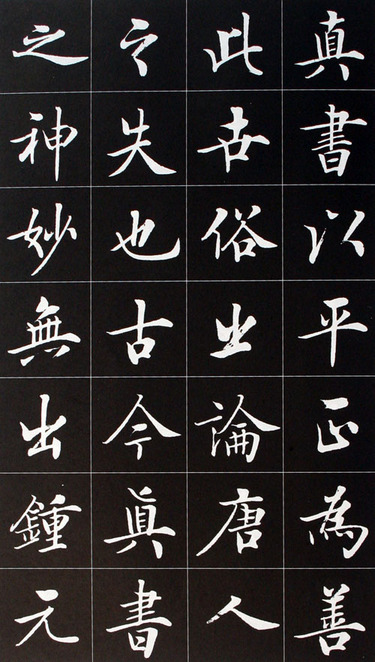 真書以平正為善
此世俗之論唐人
之失也古今眞書
之神妙無出鍾元